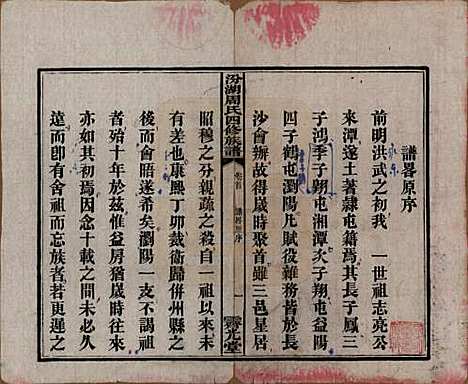 譜畧原序
前明洪武之初我　一世祖志亮公
來潭遂土著隷屯籍爲其長子鳳三
子鴻季子翔屯湘潭次子翔屯益陽
四子鶴屯瀏陽凡賦役雜務皆於長
沙會辦故得歲時聚首雖三邑星居
汾湖周氏四修族譜
卷首
譜畧原序
一
昭穆之分親疏之殺自一祖以來未
有差也康熙丁卯裁衛歸併州縣之
後而會晤遂希矣瀏陽一支不謁祖
始將十年於兹惟益房猶歲時往來
亦如其初焉因念十載之間未必久
遠而即有舍祖而忘族者若更遲之